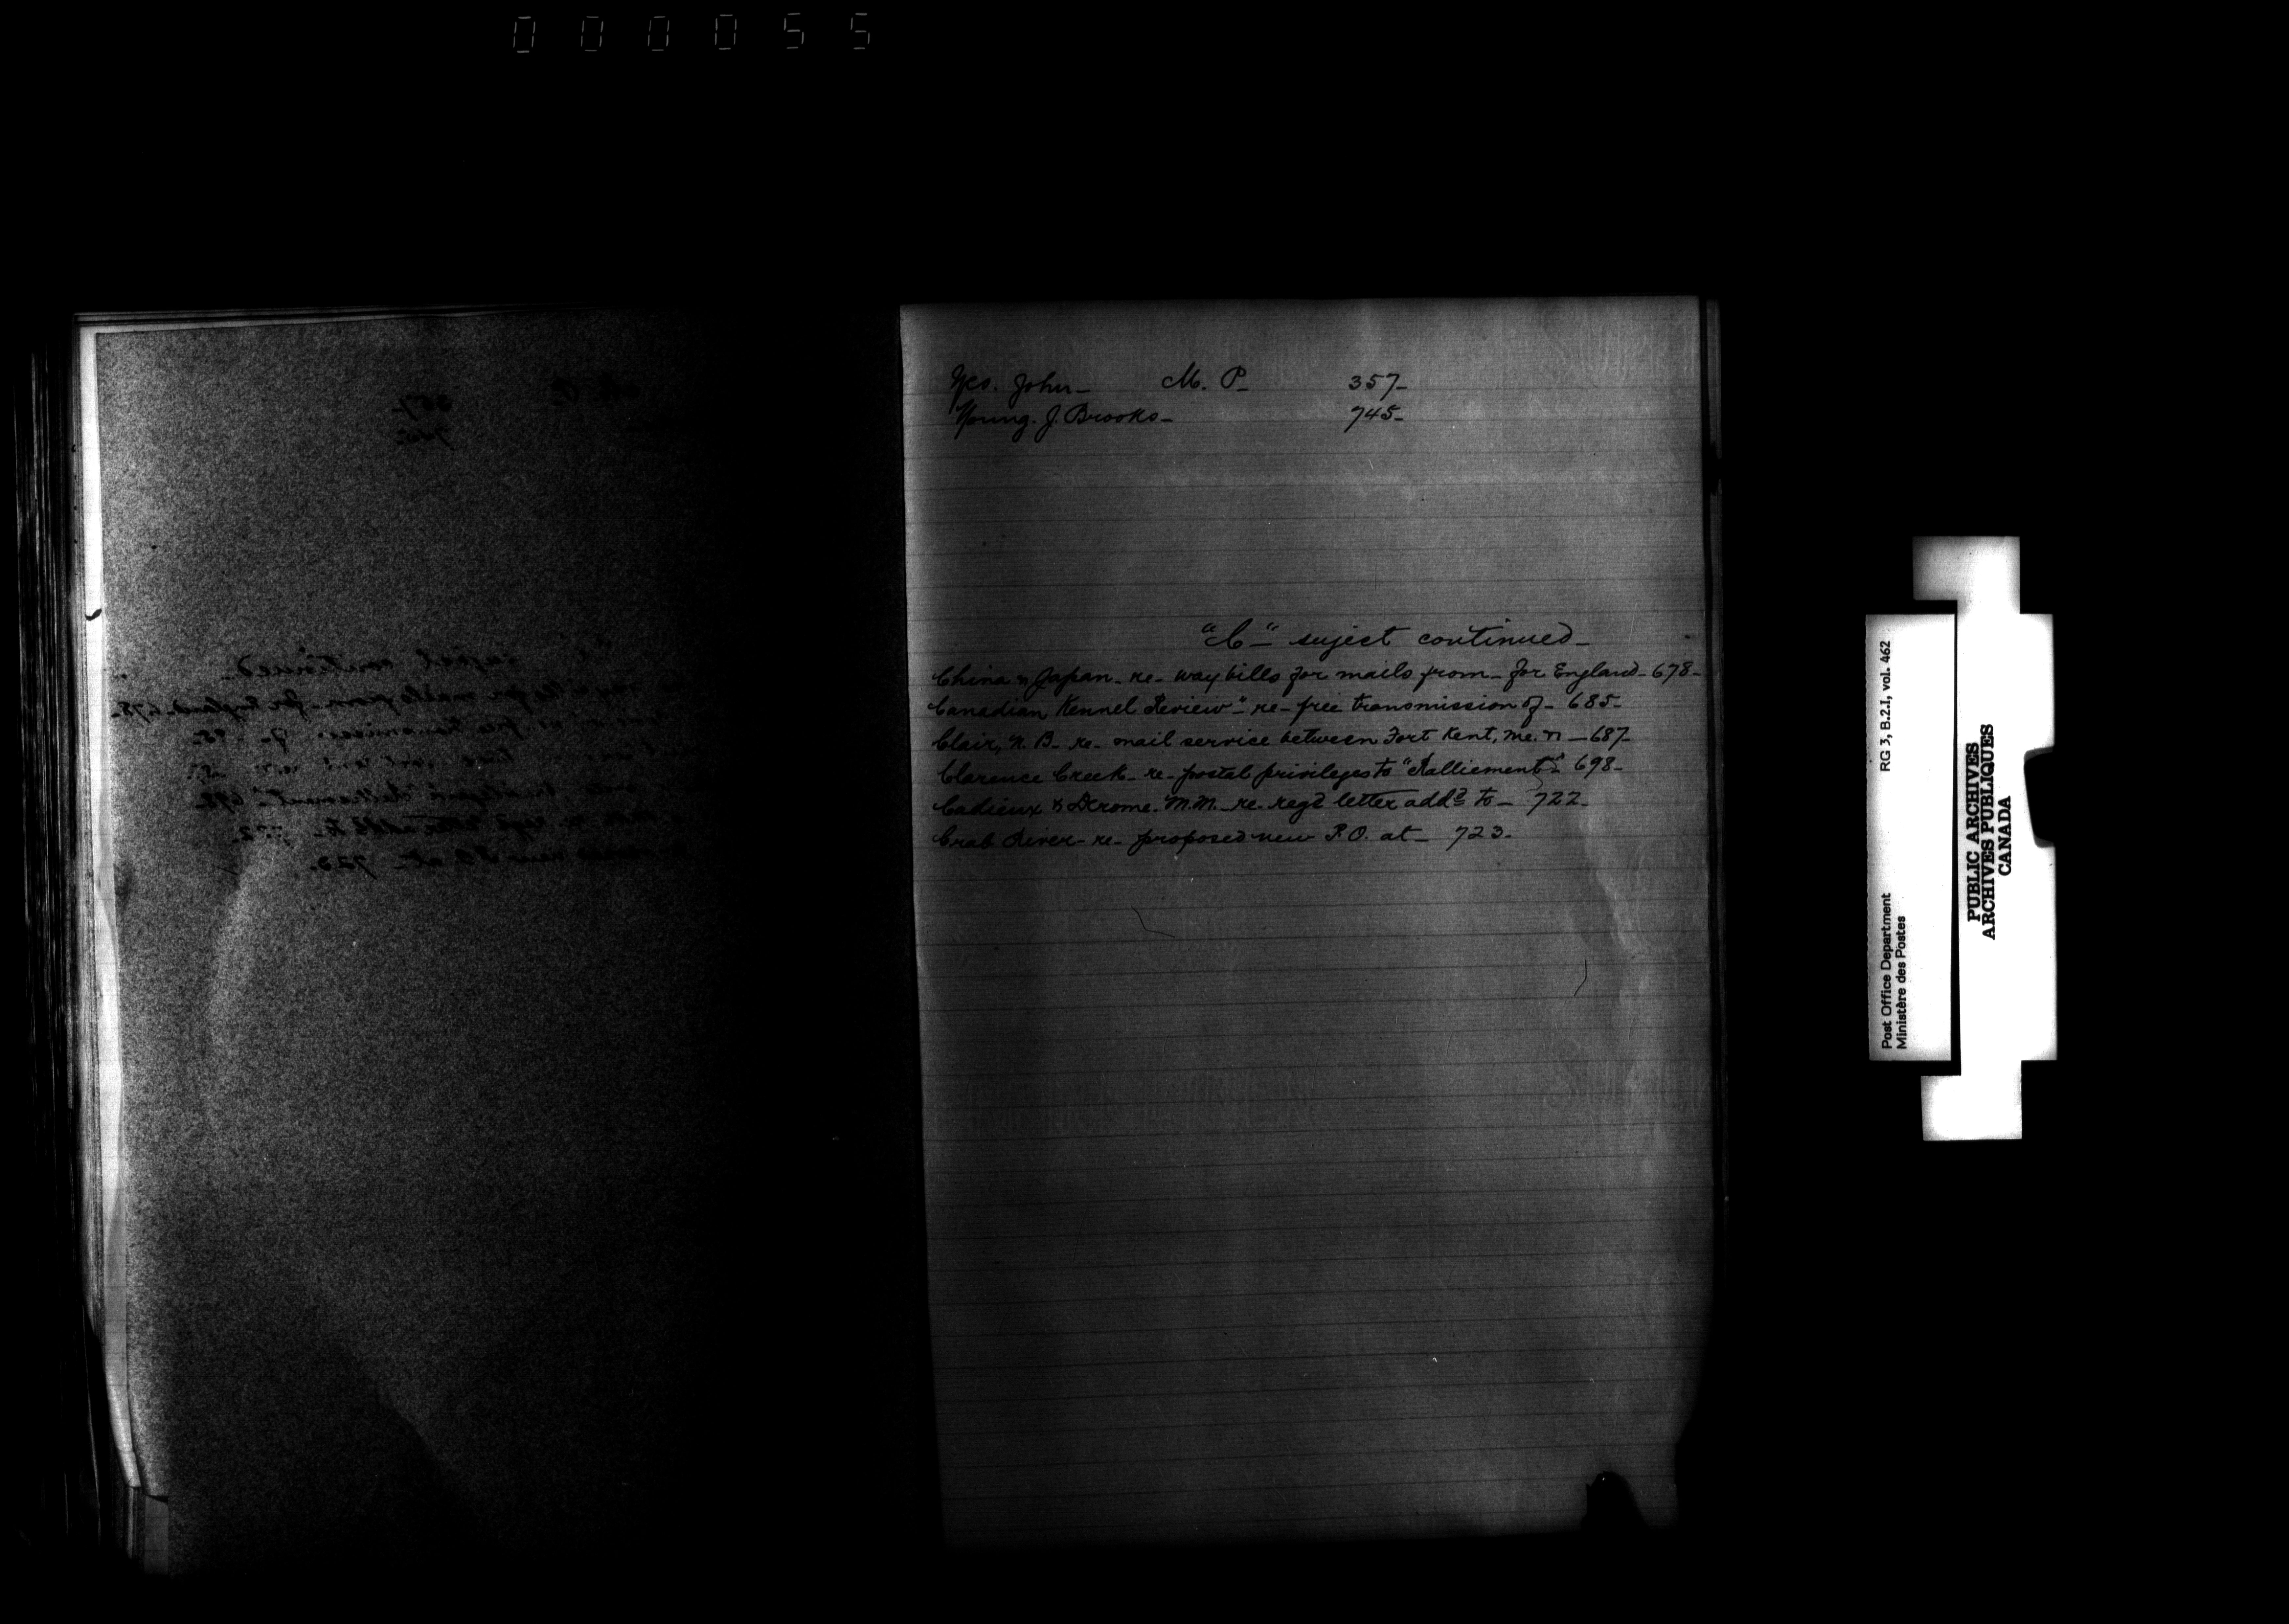 000055
Yeo. John_ M. P_ 357_
Young. J. Brooks_ 745_
"C_" suject continued_
China & Japan_ re_ way bills for mails from_ for England_ 678_
Canadian Kennel Review"_ re_ free transmission of_ 685_
Clair, N. B_ re_ mail service between Fort Kent, Me. & _ 687_
Clarence Creek_ re_ postal privileges to "Ralliement"_ 698_
Cadieux & Derome. re_ regd letter addd to_ 722_
Crab River_ re_ proposed new P. O. at_ 723_
Post Office Department
Ministère des Postes
RG 3, B.2.I, vol. 462
PUBLIC ARCHIVES
ARCHIVES PUBLIQUES
CANADA